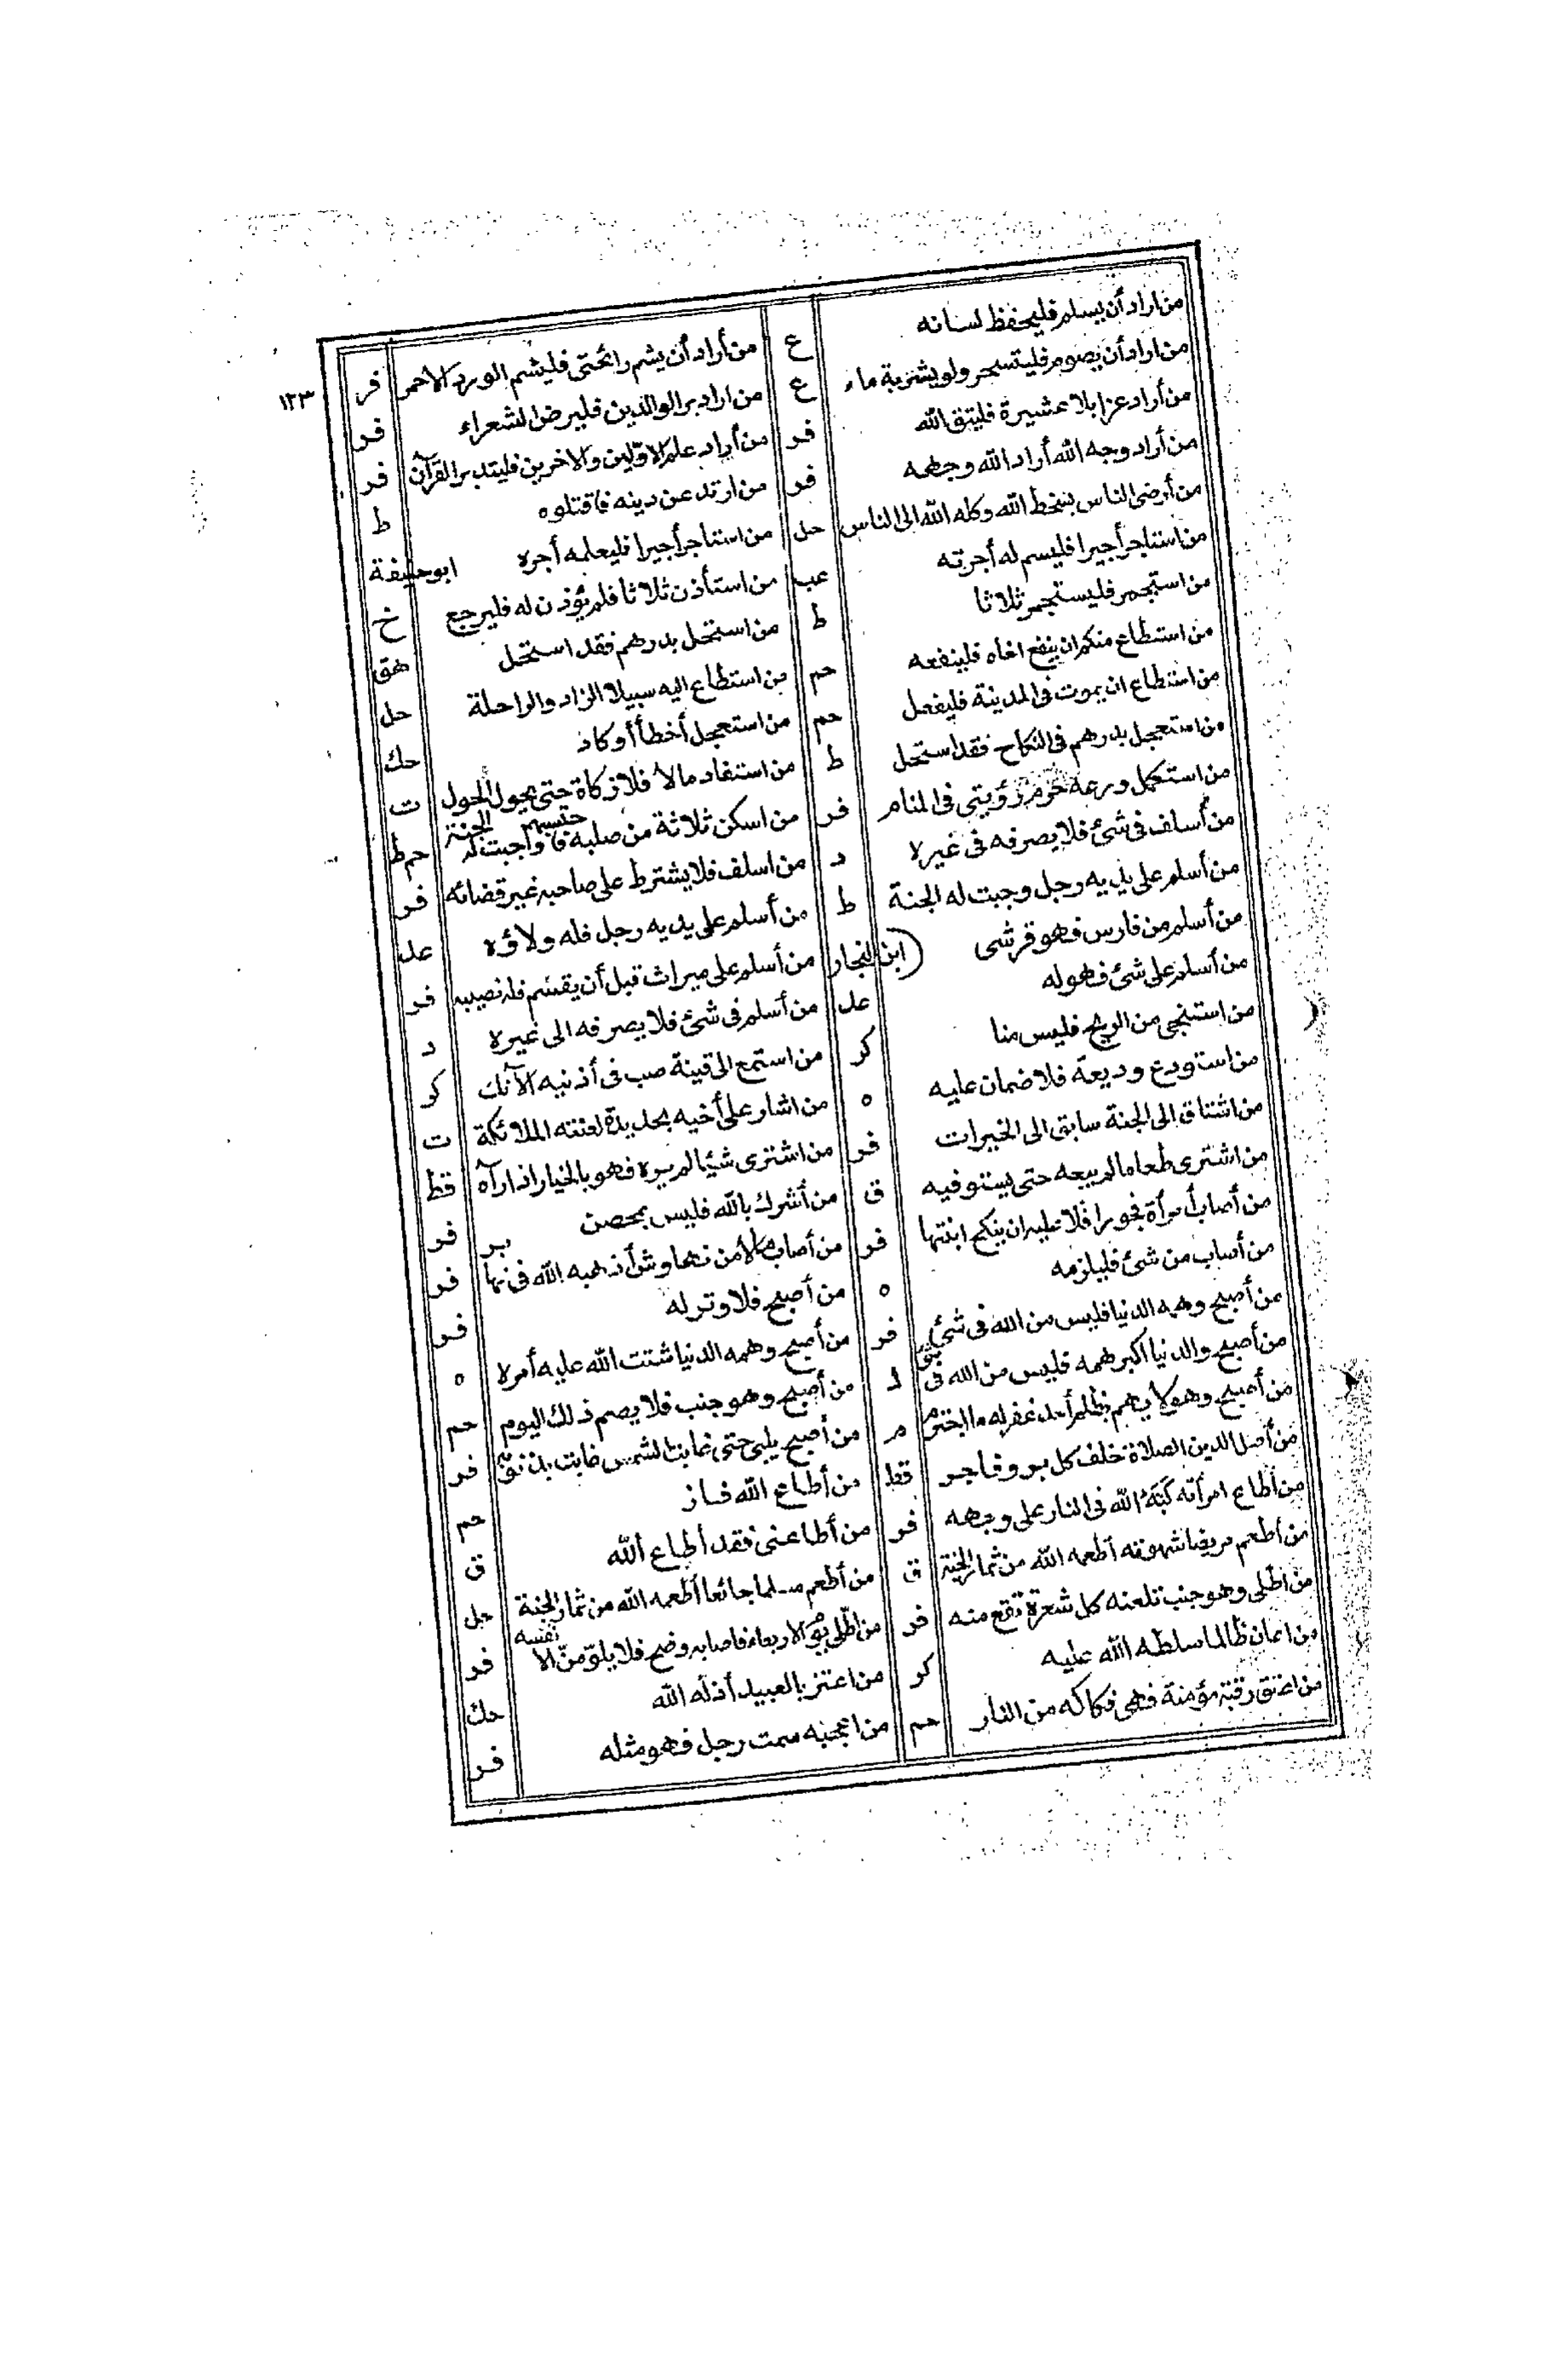 ١٢٣
من اراد أن يسلم فليحفظ لسانه ع
من اراد أن يصوم فليتسحر ولو بشربة ماء ع
من أراد عزا بلا عشيرة فليتق الله فر
من أراد وجه الله أراد الله وجهه فر
من أرضى الناس بسخط الله وكله الله الى الناس حل
من استاجر أجيرا فليسم له أجرته عب
من استجمر فليستجمر ثلاثا ط
من استطاع منكم ان ينفع اخاه فلينفعه حم
من استطاع ان يموت فى المدينة فليفعل حم
من استعجل بدرهم فى النكاح فقد استحل ط
من استكمل ورعه حرم رؤيتى فى المنام فر
من أسلف فى شئ فلا يصرفه فى غيره د
من أسلم على يديه رجل وجبت له الجنة ط
من أسلم من فارس فهو قرشى (ابن النجار
من أسلم على شئ فهو له عد
من استنجى من الريح فليس منا كر
من استودع وديعة فلا ضمان عليه ه
من اشتاق الى الجنة سابق الى الخيرات فر
من اشترى طعاما لم يبعه حتى يستوفيه ق
من أصاب أمرأة فجورا فلا عليه ان ينكح ابنتها فر
من أصاب من شئ فليلزمه ه
من أصبح وهمه الدنيا فليس من الله فى شئ فر
من أصبح والدنيا اكبر همه فليس من الله فى شئ ك
من أصبح وهو لا يهم بظلم أحد غفر له ما اجترم مر
من أصل الدين الصلاة خلف كل بر وفاجر قط
من أطاع امرأته كبّه الله فى النار على وجهه فر
من أطعم مريضا شهوته أطعمه الله من ثمار الجنة ق
من اطلى وهو جنب تلعنه كل شعرة تقع منه فر
من اعان ظالما سلطه الله عليه كر
من اعتق رقبة مؤمنة فهى فكاكه من النار حم
من أراد أن يشم رائحتى فليشم الورد الاحمر فر
من اراد بر الوالدين فليرض الشعراء فر
من أراد علم الاوّلين والاخرين فليتدبر القرآن فر
من ارتد عن دينه فاقتلوه ط
من استاجر أجيرا فليعلمه أجره ابو حنيفة
من استأذن ثلاثا فلم يؤذن له فليرجع خ
من استحل بدرهم فقد استحل هق
من استطاع اليه سبيلا الزاد والراحلة حل
من استعجل أخطأ أو كاد حك
من استفاد مالا فلا زكاة حتى يحول الحول ت
من اسكن ثلاثة من صلبه فاحتسبهم وجبت له الجنة حم ط
من اسلف فلا يشترط على صاحبه غير قضائه فر
من أسلم على يديه رجل فله ولاؤه عد
من أسلم على ميراث قبل أن يقسم فله نصيبه فر
من أسلم فى شئ فلا يصرفه الى غيره د
من استمع الى قينة صب فى أذنيه الآنك كر
من اشار على أخيه بحديدة لعنته الملائكة ت
من اشترى شيئا لم يره فهو بالخيار اذا رآه قط
من أشرك بالله فليس بمحصن بر فر
من أصاب مالا من نهاوش أذهبه الله فى نها بر فر
من أصبح فلا وتر له فر
من أصبح وهمه الدنيا شتت الله عليه أمره ه
من أصبح وهو جنب فلا يصم ذلك اليوم حم
من أصبح يلبى حتى غابت الشمس غابت بذنوبه فر
من أطاع الله فاز حم
من أطاعنى فقد أطاع الله ق
من أطعم مسلما جائعا أطعمه الله من ثمار الجنة حل
من اطّلى يوم الاربعاء فاصابه وضح فلا يلومنّ الا نفسه فر
من اعتز بالعبيد أذله الله حك
من اعجبه سمت رجل فهو مثله فر